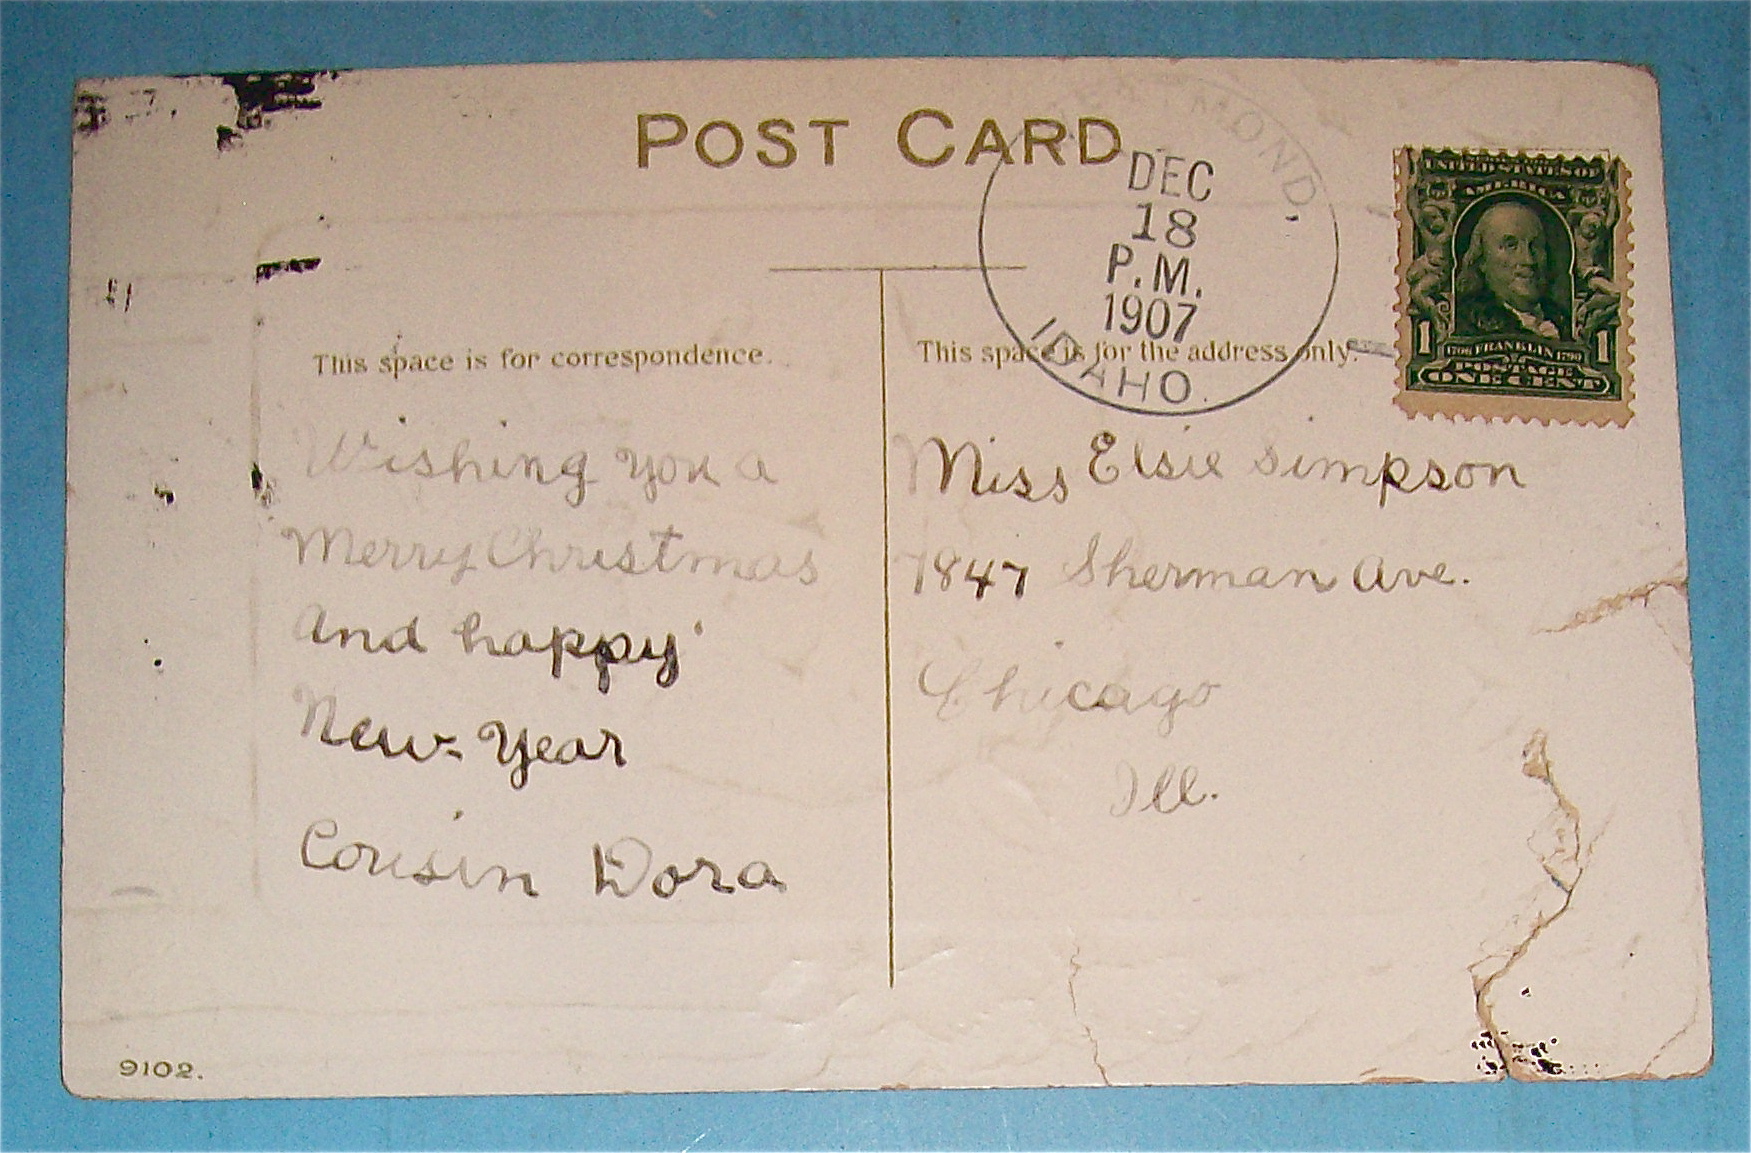 POST CARD
MOND,
DEC
18
P.M.
1907
IDAHO.
UNITED STATES OF
AMERICA
1 1706 FRANKLIN 1790 1
POSTAGE
ONE CENT
This space is for correspondence.
This space is for the address only.
Wishing you a
Merry Christmas
And happy
New-Year
Cousin Dora
Miss Elsie Simpson
7847 Sherman Ave.
Chicago
Ill.
9102.